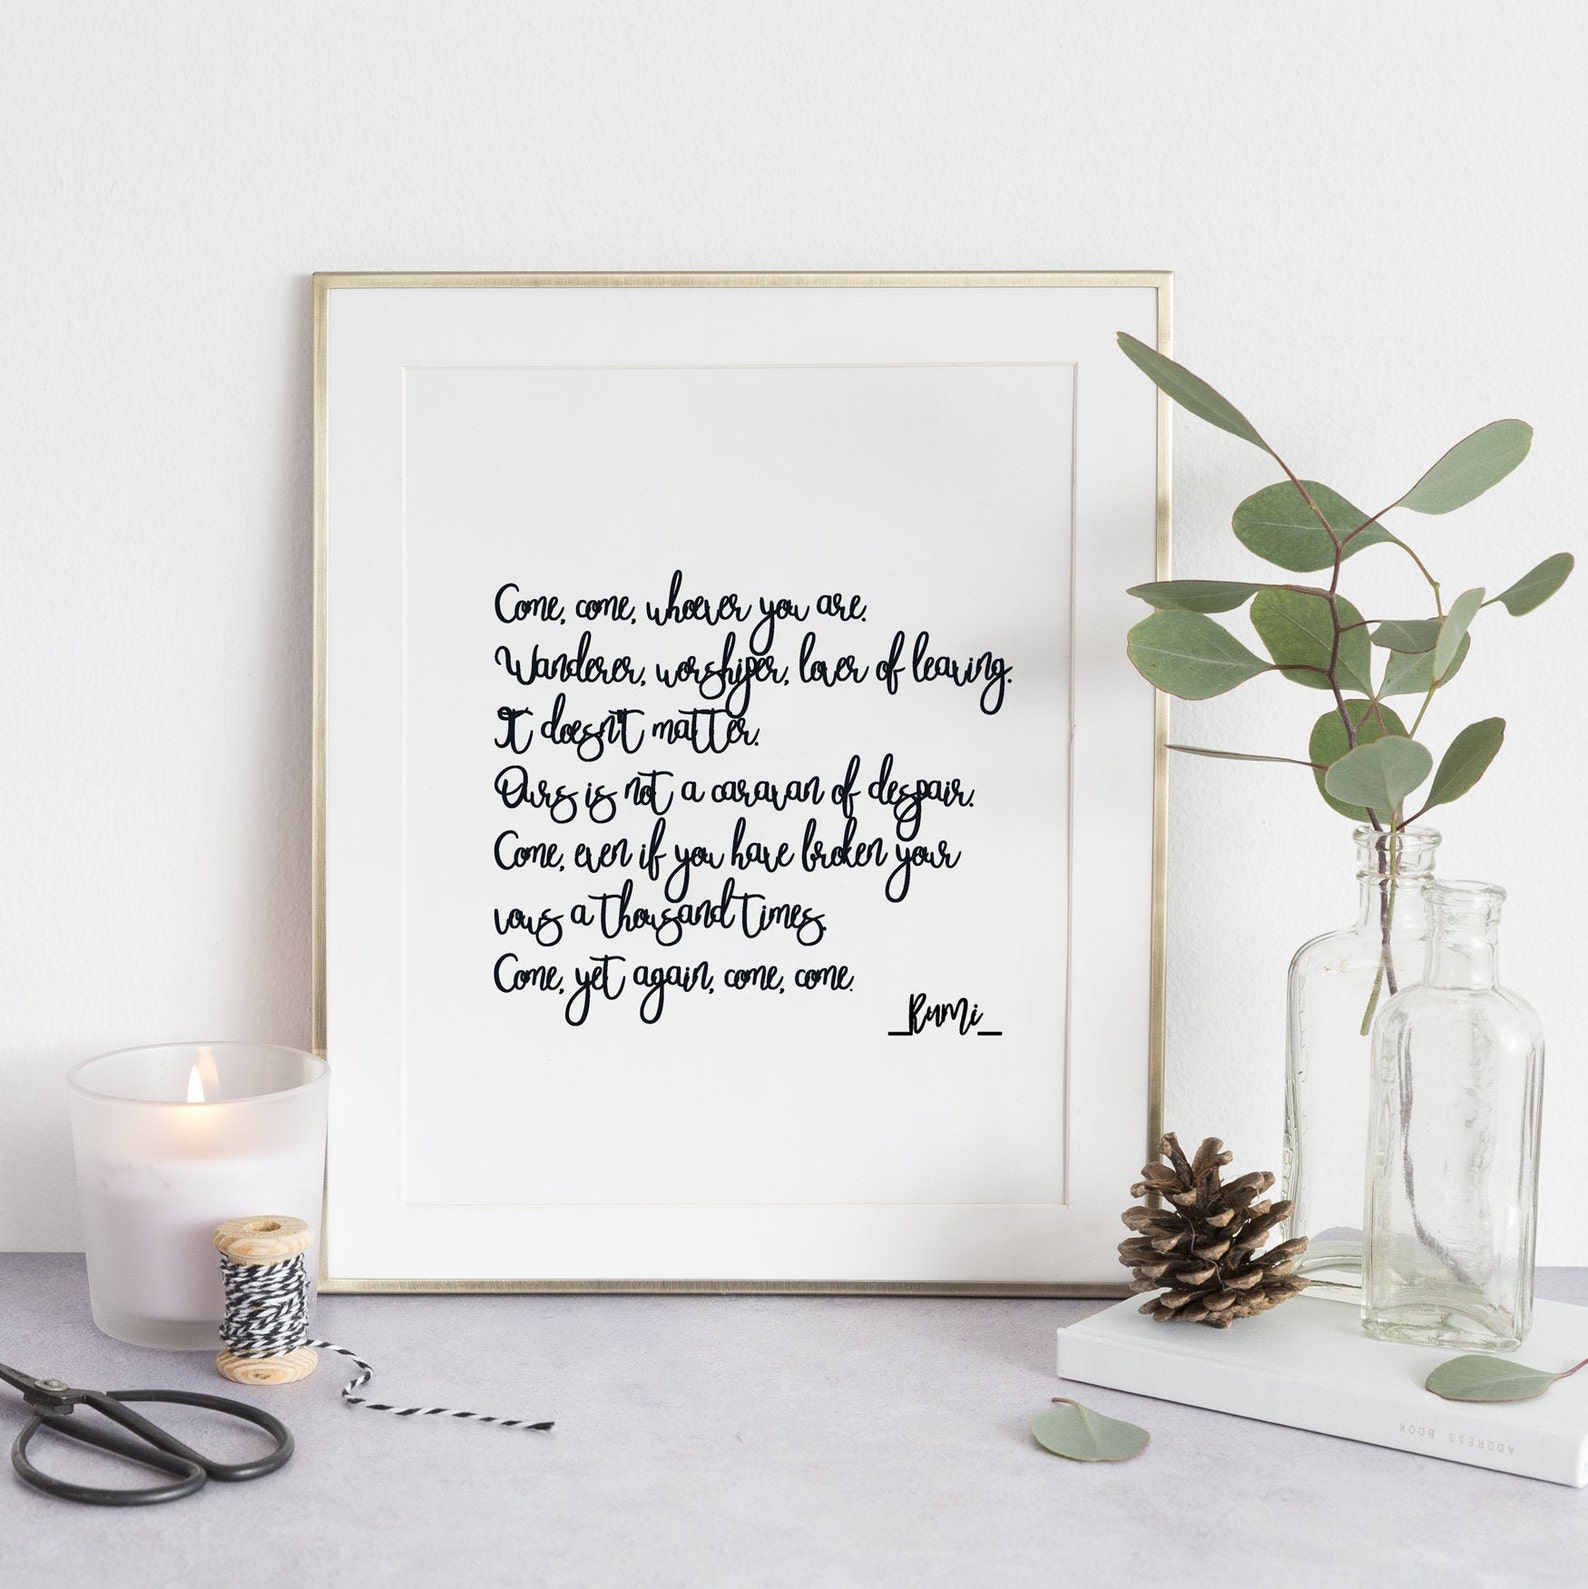 Come, come, whoever you are.
Wanderer, worshiper, lover of leaving.
It doesn't matter.
Ours is not a caravan of despair.
Come, even if you have broken your
vows a thousand times.
Come, yet again, come, come.
_Rumi_
ADDRESS BOOK